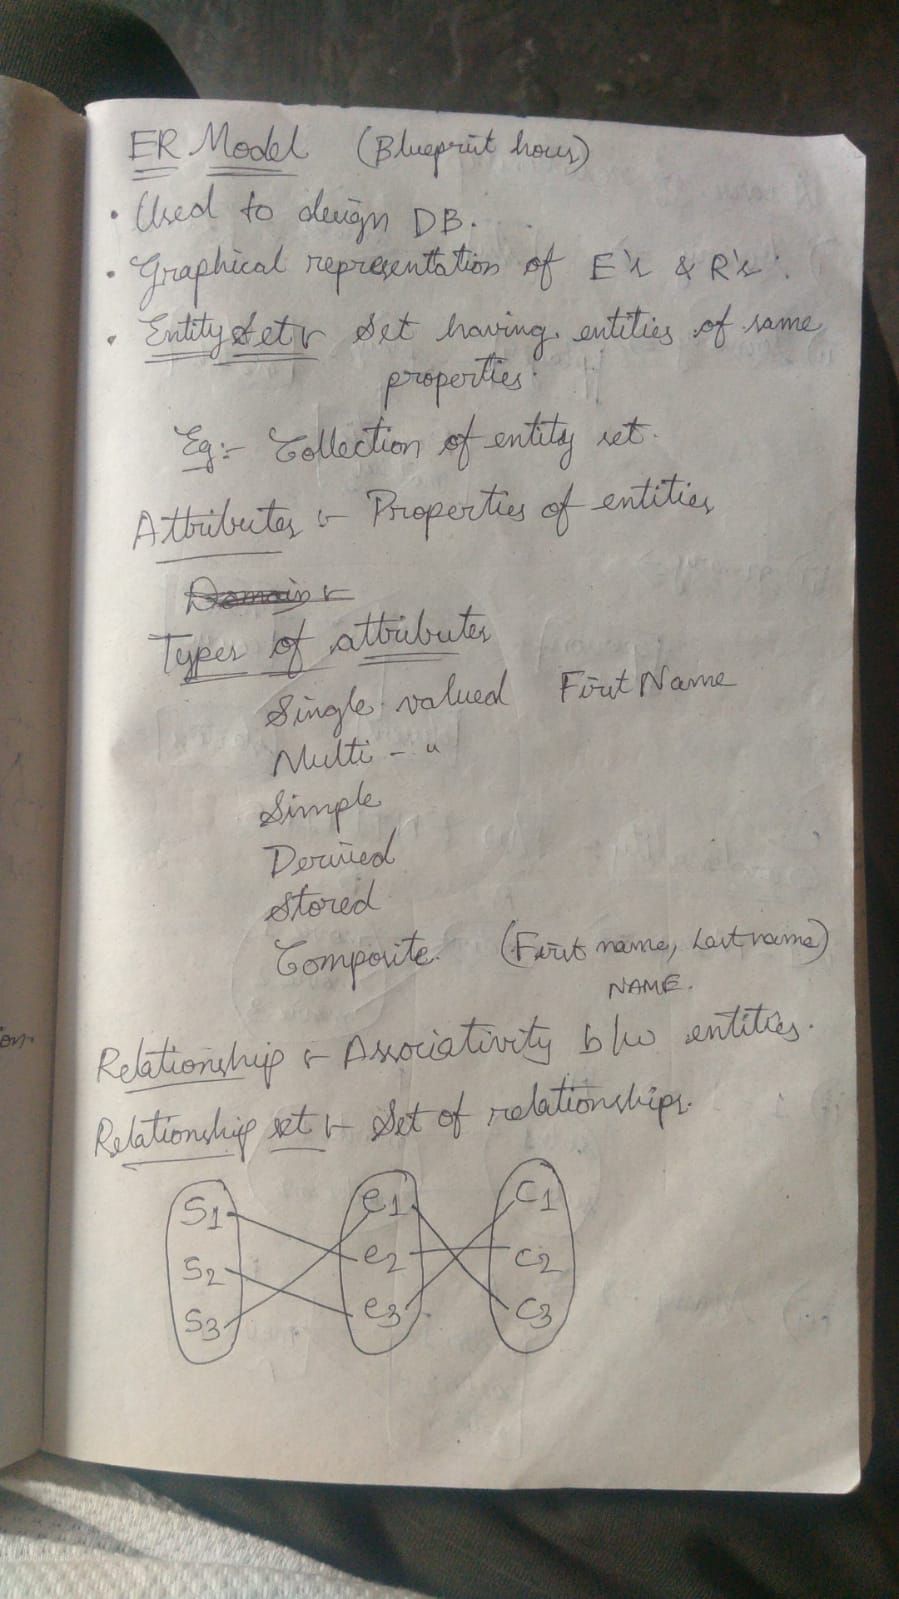 ER Model (Blueprint hous)
• Used to design DB.
• Graphical representation of E's & R's.
• Entity Set :- Set having entities of same
properties.
Eg:- Collection of entity set.
Attributes :- Properties of entities
Domain :-
Types of attributes
Single valued First Name
Multi - "
Simple
Derived
Stored
Composite. (First name, Last name)
NAME.
Relationship :- Associativity b/w entities.
Relationship set :- Set of relationships.
S1 e1 C1
S2 e2 C2
S3 e3 C3